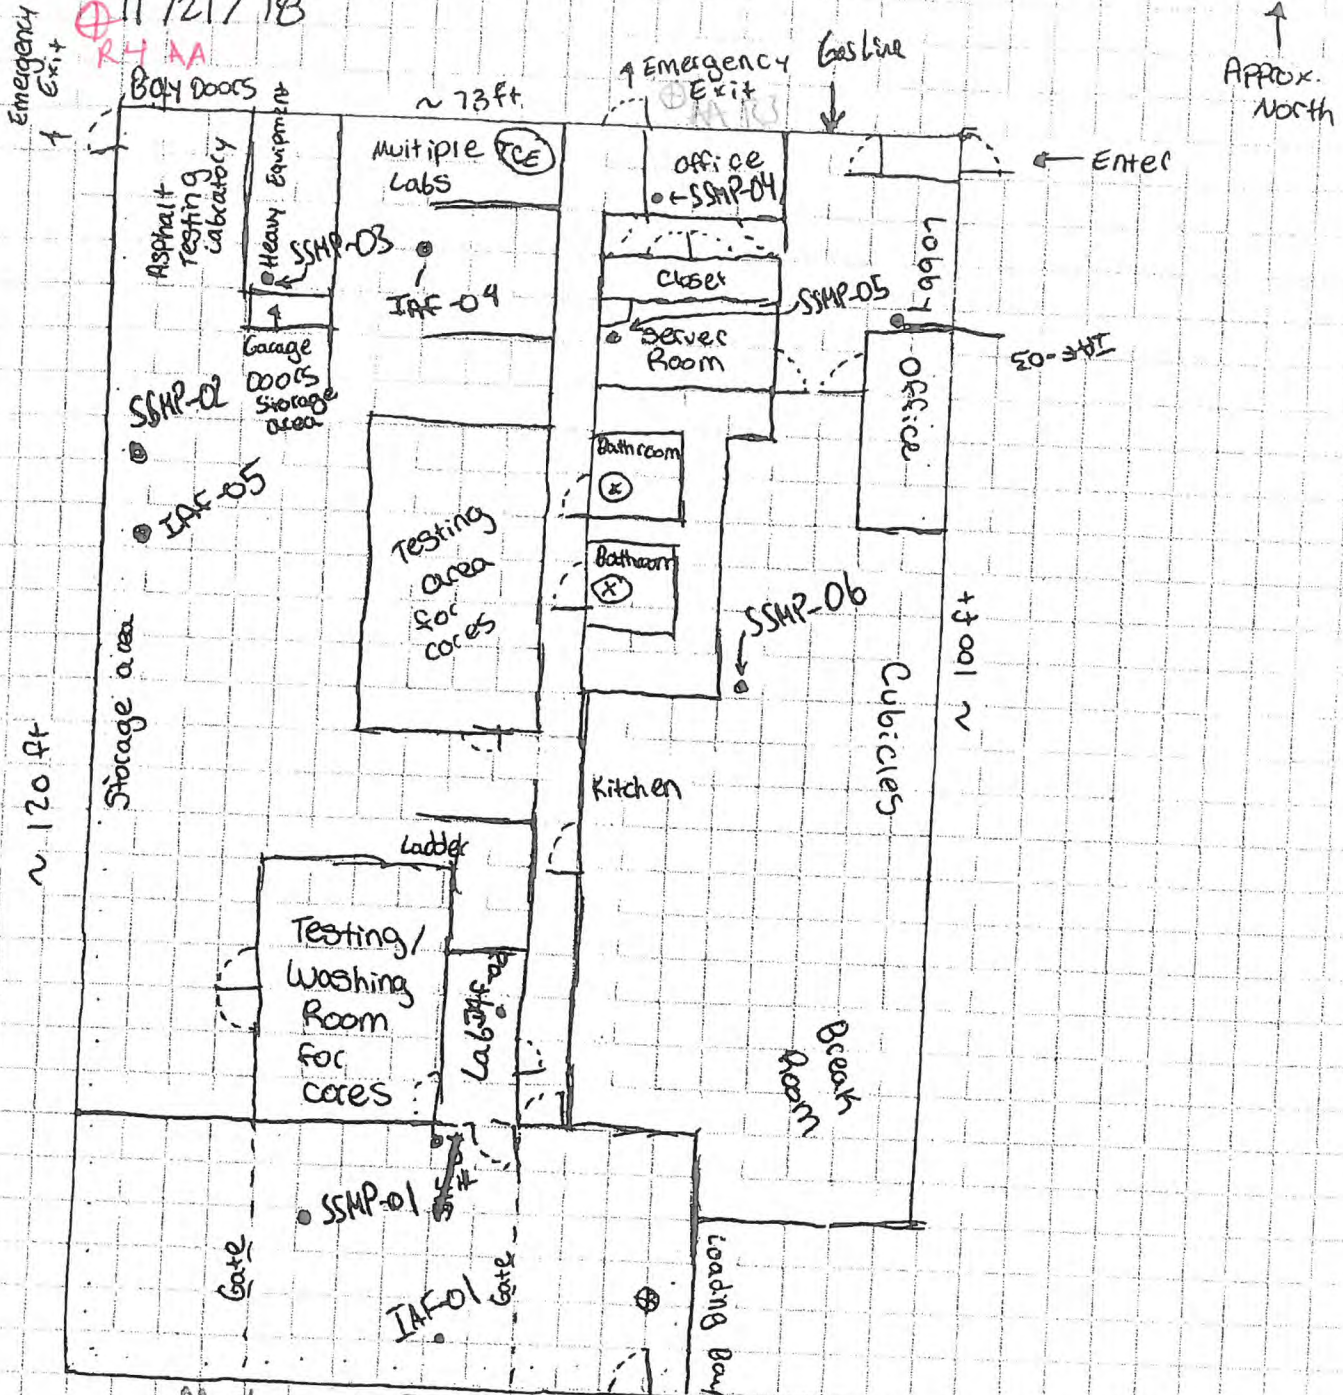 11/21/18
R4 AA
Emergency
Exit
Bay Doors
~ 73 ft.
Emergency
Exit
Gas Line
Approx.
North
Enter
Asphalt
Testing
Labratory
Heavy Equipment
Multiple
Labs
TCE
office
SSMP-04
Lobby
SSMP-03
IAF-04
Closet
SSMP-05
Server
Room
IAF-03
Office
Garage
Doors
Storage
area
SSMP-02
IAF-05
Bathroom
Bathroom
Testing
area
for
cores
SSMP-06
~ 100 ft
Cubicles
Storage area
~ 120 ft
Kitchen
Ladder
Testing/
Washing
Room
for
cores
Lab
Break
Room
SSMP-01
Gate
Gate
IAF-01
Loading Bay